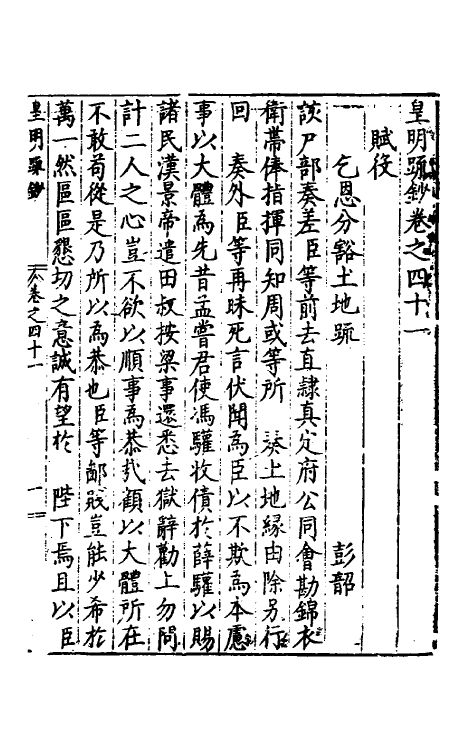 皇明疏鈔卷之四十一
賦役
乞恩分豁土地疏
彭韶
該户部奏差臣等前去直隸真定府公同會勘錦衣
衛帶俸指揮同知周或等所 奏土地緣由除另行
回 奏外臣等再昧死言伏聞為臣以不欺為本慮
事以大體為先昔孟嘗君使馮驩收債於薛驩以賜
諸民漢景帝遣田叔按梁事還悉去獄辭勸上勿問
計二人之心豈不欲以順事為恭哉顧以大體所在
不敢苟從是乃所以為恭也臣等鄙賤豈能少希於
萬一然區區懇切之意誠有望於 陛下焉且以臣
皇明疏鈔
卷之四十一
一